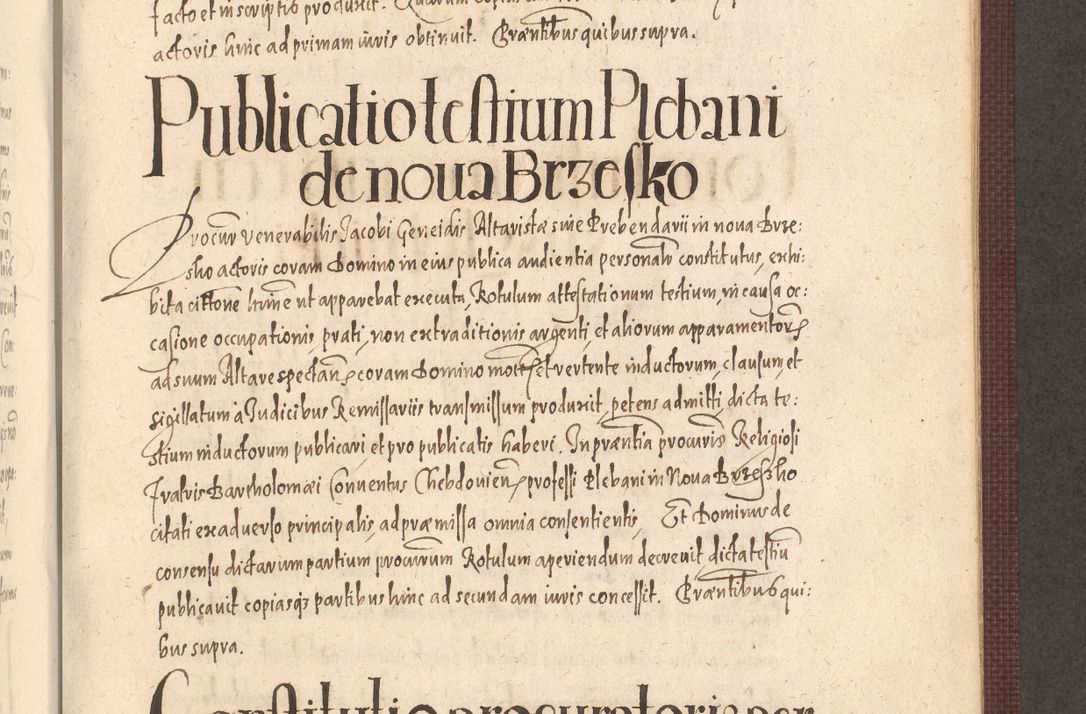 facto et in scriptis produxit. Quarum copiam
actoris hinc ad primam iuris obtinuit. Præntibus quibus supra.
Publicatio testium Plebani
de noua Brzesko
Procur venerabilis Jacobi Geneidis Altaristæ siue Prebendarii in noua Brze:
sko actoris coram Domino in eius publica audientia personalr constitutus, exhi:
bita cittone huine ut apparebat executa, Rotulum attestationum testium, in causa oc:
casione occupationis prati, non extraditionis argenti, et aliorum apparamentor
ad suum Altare spectan coram Domino mot et vertente inductorum, clausum, et
sigillatum à Judicibus Remissariis transmissum produxit, petens admitti, dicta te:
stium inductorum publicari et pro publicatis haberi. In præntia procuris Religiosi
Fratris Bartholomæi Conuentus Chebdouien professi Plebani in Noua Brzesko
citati ex aduerso principalis, ad præmissa omnia consentientis, Et Dominus de
consensu dictarum partium procurum Rotulum aperiendum decreuit dicta testiu
publicauit copiasq3 partibus hinc ad secundam iuris concessit. Præntibus qui:
bus supra.
Constitutio procuratoris per